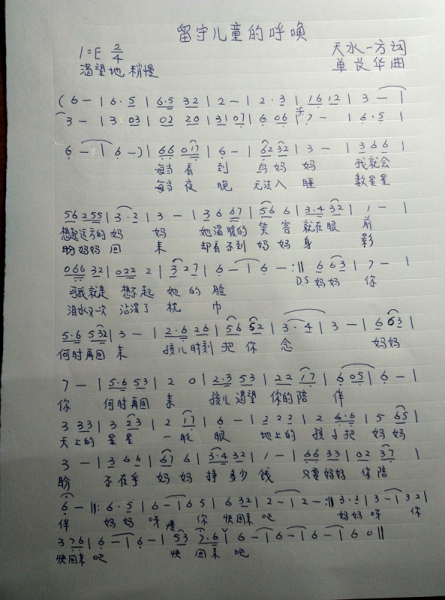 留守儿童的呼唤
1=E 2/4 天水一方词
渴望地 稍慢 单芡华曲
(6 - | 6·5 | 6·5 32 | 2 - | 2·3 | 1612 | 3 - |
3 - | 3 03 | 02 20 | 31 07 | 6 06 | 7 - | 6·5 |
6 - | 6 -) | 66 017 | 6 - | 6232 | 3 - | 366 |
每当看到 妈妈 我就会
每当夜晚 无法入睡 数星星
56 255 | 3·2 | 3 - | 36 67 | 56 6 | 3·432 | 1 - |
想起远方的妈妈 她温暖的笑容就在眼前
盼妈妈回来 却看不到妈妈身影
066 32 | 022 2 | 327 | 6 - | 6 - :|| 663 | 7 - |
可我就是想不起她的脸 DS 妈妈你
泪水又一次沾湿了枕巾
5·6 532 | 3 - | 2·6 26 | 56 52 | 3·4 | 3 - | 663 |
何时再回来 接儿时刻把你念 妈妈
7 - | 5·6 53 | 2 0 | 2·3 53 | 22 17 | 6 05 | 6 - |
你 何时再回来 孩儿渴望你的陪伴
3 33 | 3 23 | 2 17 | 6 - | 22 2 | 2 6·6 | 5 65 |
天上的星星一眨眼 地上的孩子把妈妈
3 - | 3 66 | 67 6 | 3·432 | 1 - | 66 33 | 02 37 |
盼 不在乎妈妈挣多少钱 只要妈妈你陪
6 - :|| 6·5 | 6 - | 65 | 632 | 2 - | 2 - :|| 3·2 | 3 - | 32 |
伴 妈妈呀 你快回来 妈妈呀 你
376 | 6 - | 6 - | 53 | 7·6 | 6 - | 6 - | 6 - | 6 0 ||
快回来吧 快回来吧